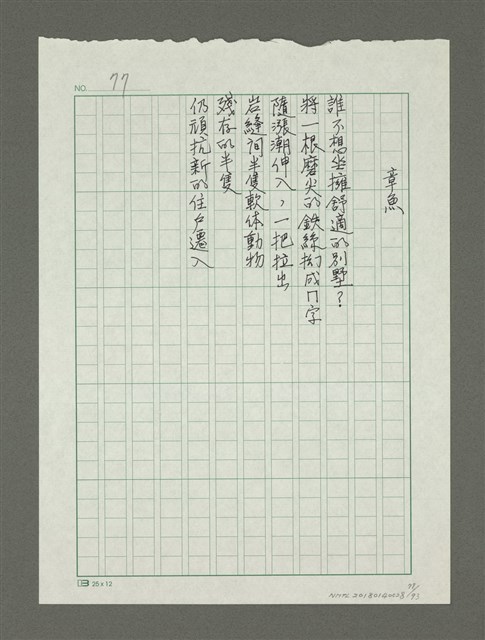 NO. 77
章魚
誰不想坐擁舒適的別墅？
將一根磨尖的鉄絲拗成冂字
隨漲潮伸入，一把拉出
岩縫間半隻軟体動物
殘存的半隻
仍頑抗新的住戶遷入
25x12
NMTL20180140028
77/93